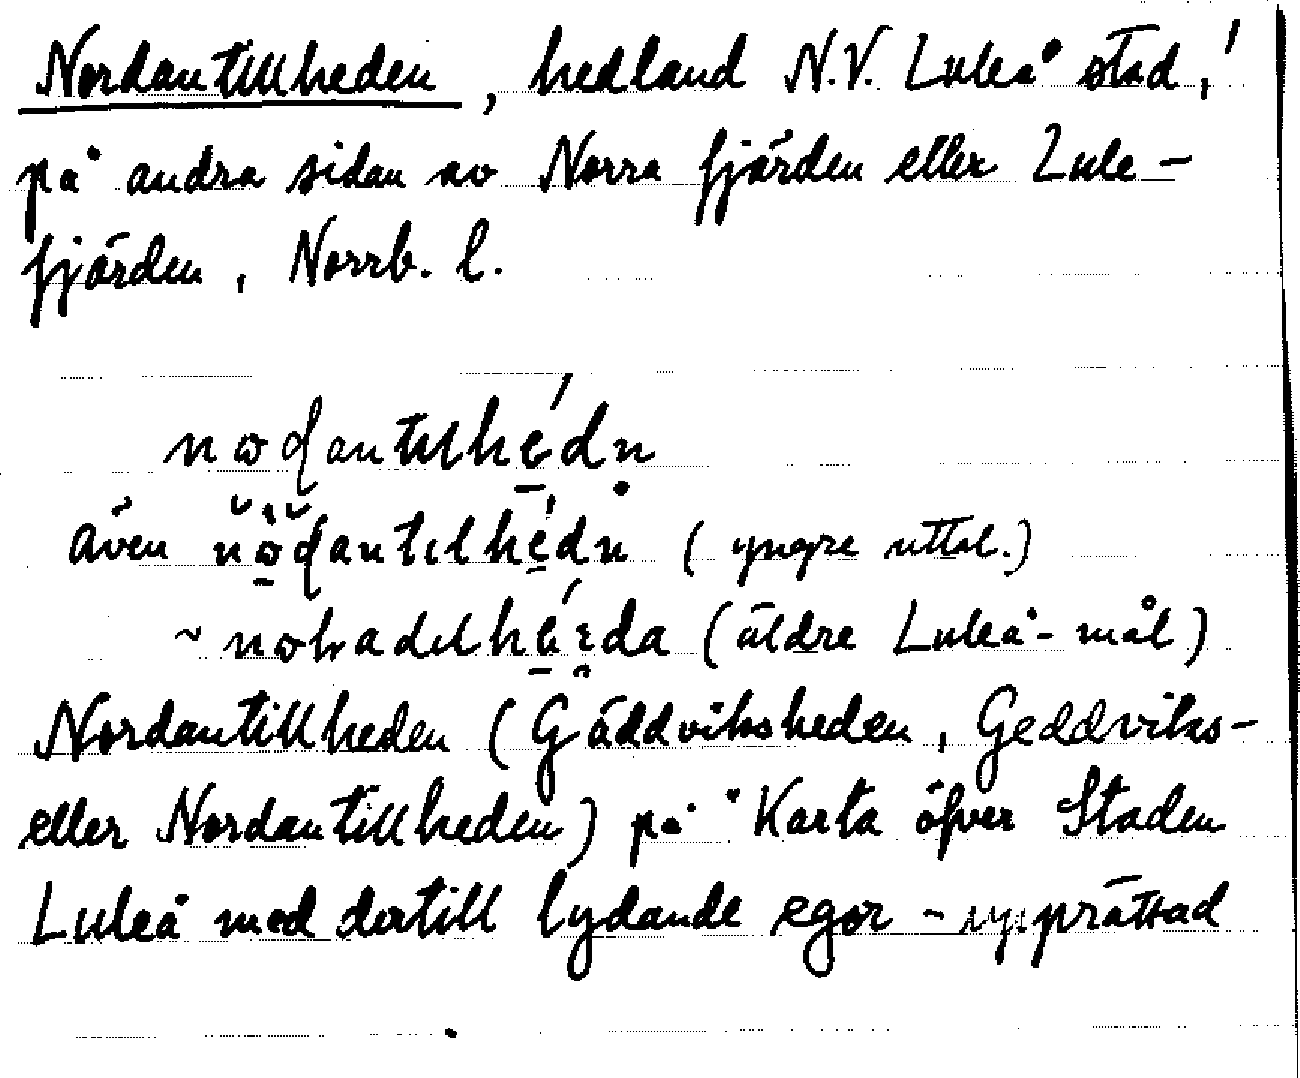 Nordantillheden, hedland N.V. Luleå stad,
på andra sidan av Norra fjärden eller Lule-
fjärden, Norrb. l.
även (yngre uttal.)
~ (äldre Luleå-mål)
Nordantillheden (Gäddviksheden, Geddviks-
eller Nordantillheden) på "Karta öfver Staden
Luleå med dertill lydande egor - upprättad